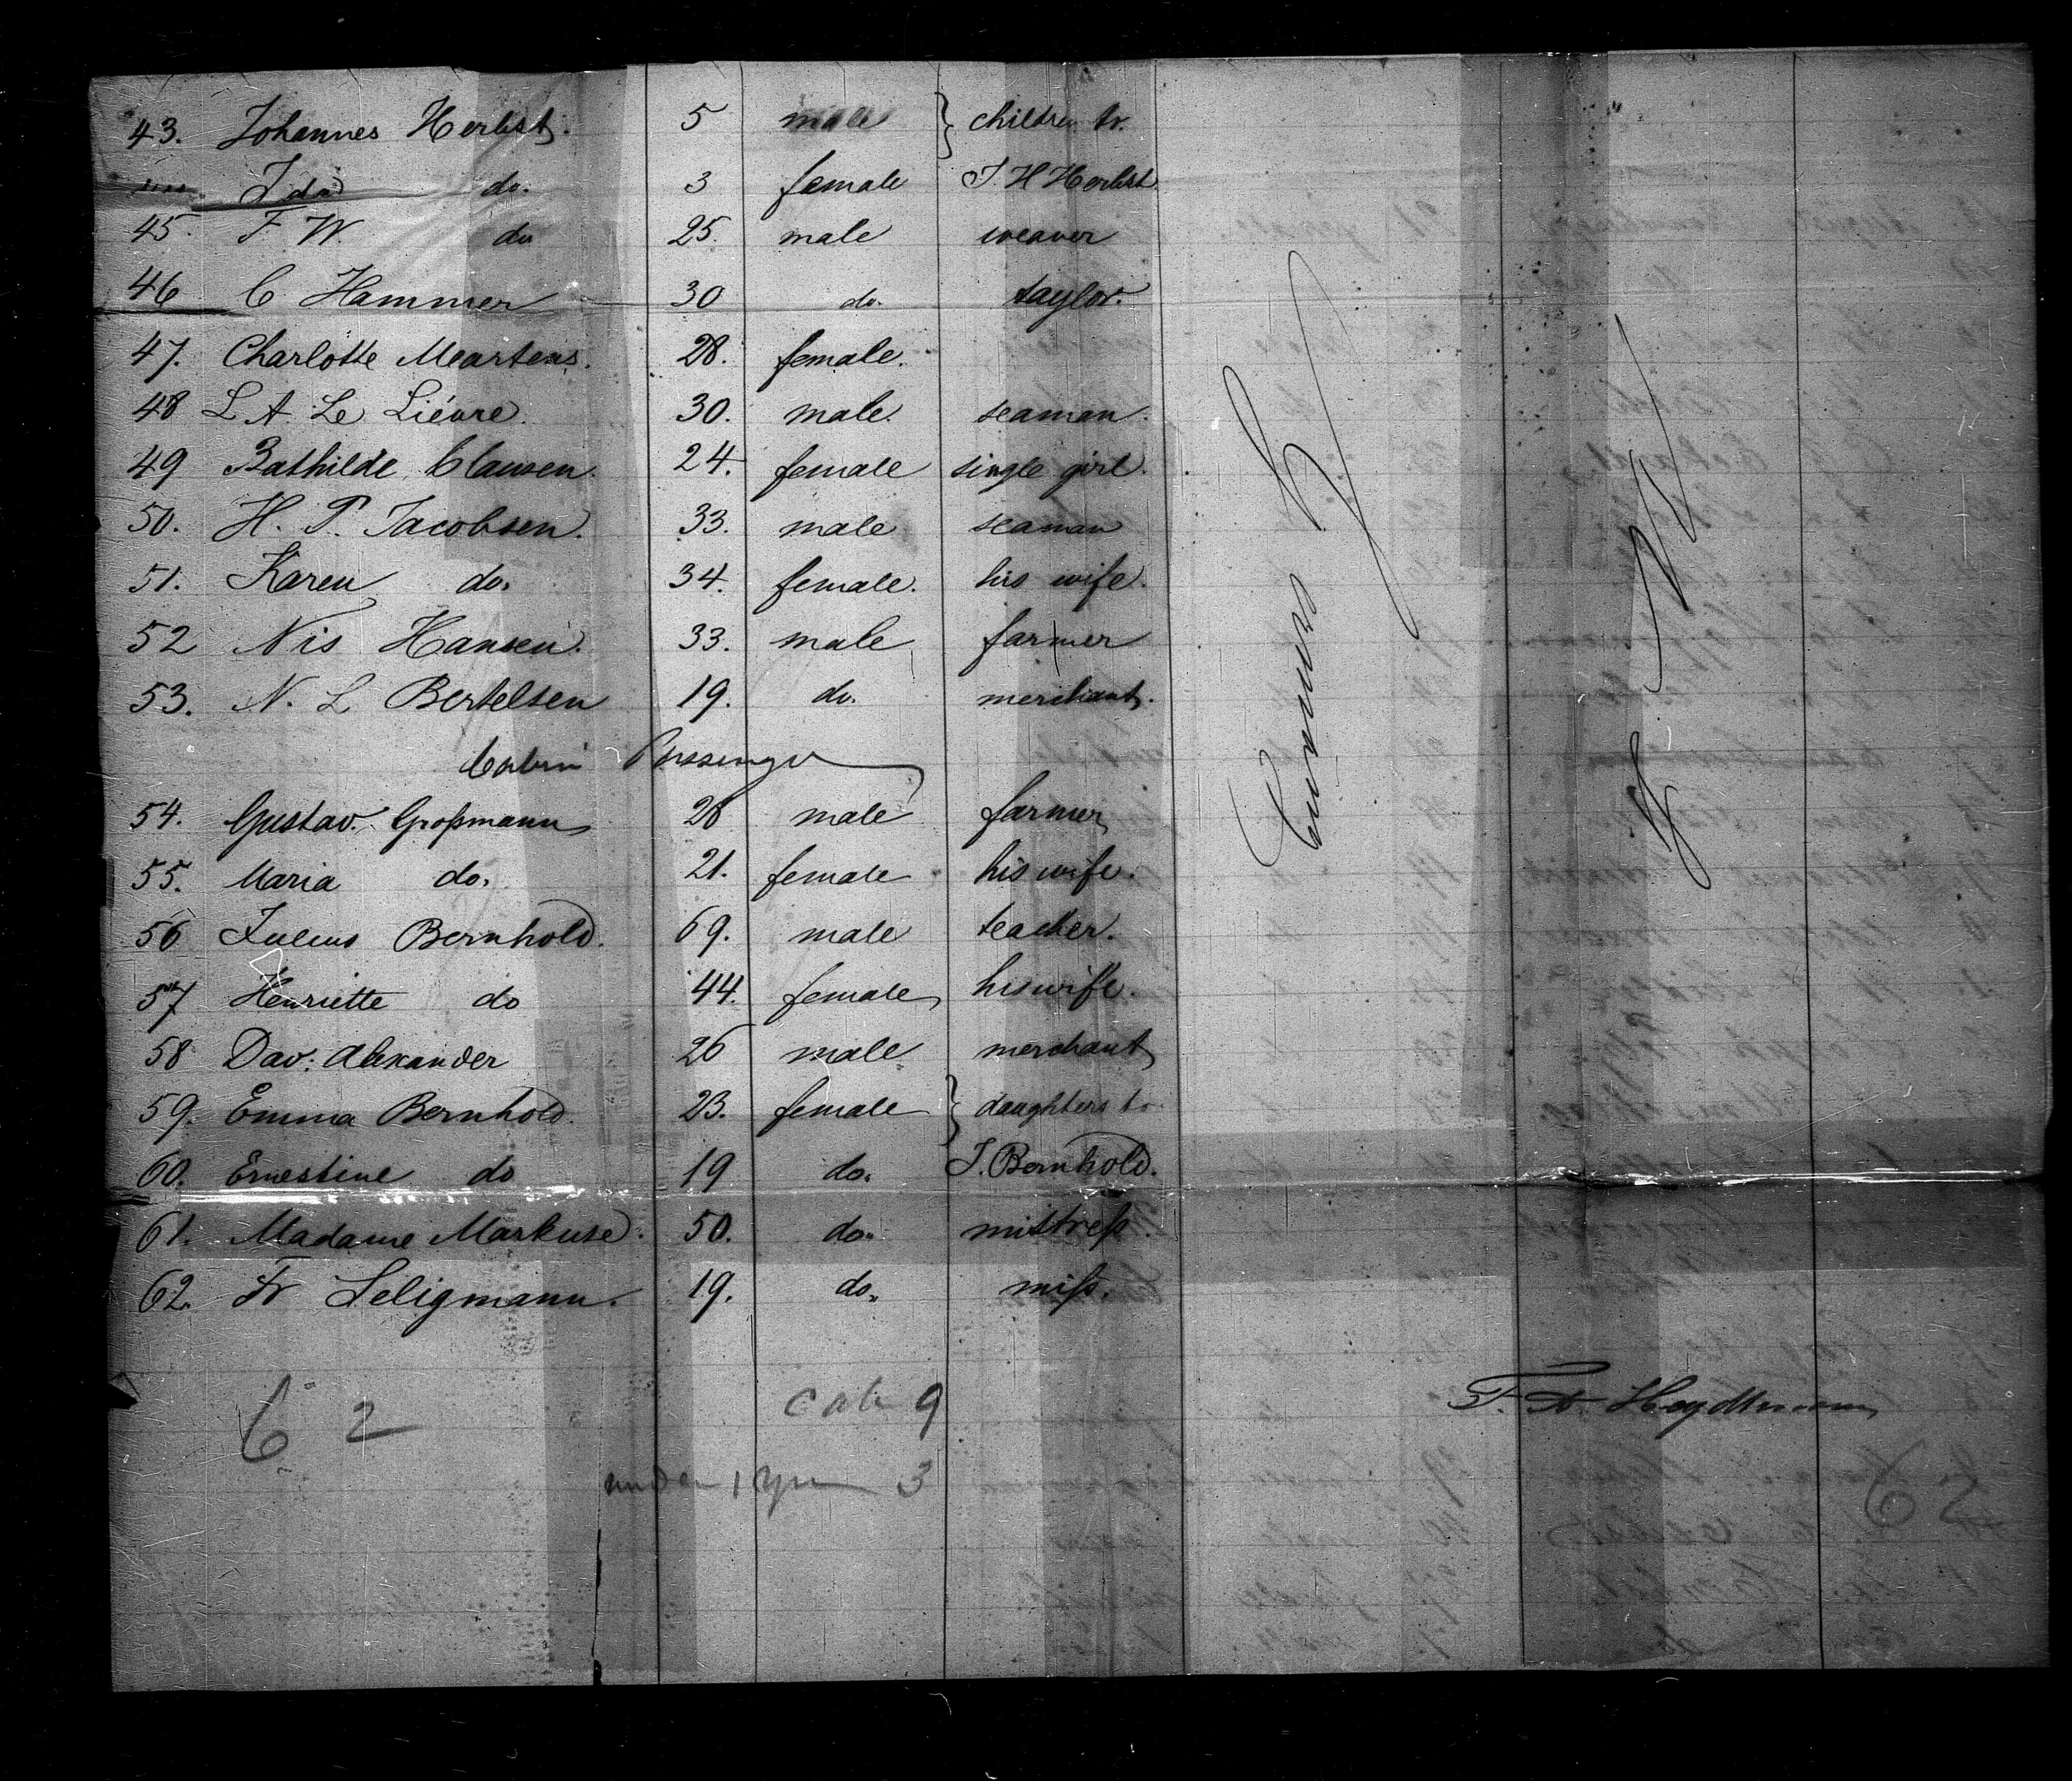 43. Johannes Herbst. 5 male } children to.
Ida do. 3 female J. H Herbst
45. F. W. do 25. male weaver
46 C. Hammer 30 do. taylor.
47. Charlotte Meartens. 28. female.
48 L. A. Le Liévre. 30. male. seaman.
49 Bathilde Clausen. 24. female single girl.
50. H. P. Jacobsen. 33. male seaman
51. Karen do. 34. female. his wife.
52 Nis Hansen. 33. male farmer
53. N. L Bertelsen 19. do. merchant.
Cabin Passenger
54. Gustav. Großmann 28 male farmer
55. Maria do. 21. female his wife.
56 Julius Bernhold. 69. male teacher.
57 Henriette do 44. female his wife.
58 Dav: Alexander 26 male merchant
59. Emma Bernhold. 23. female } daughters to
60. Ernestine do 19 do. J. Bernhold.
61. Madame Markuse. 50. do. mistreß.
62. Fr Seligmann. 19. do. miß.
62 cab 9
under 1 year 3
62